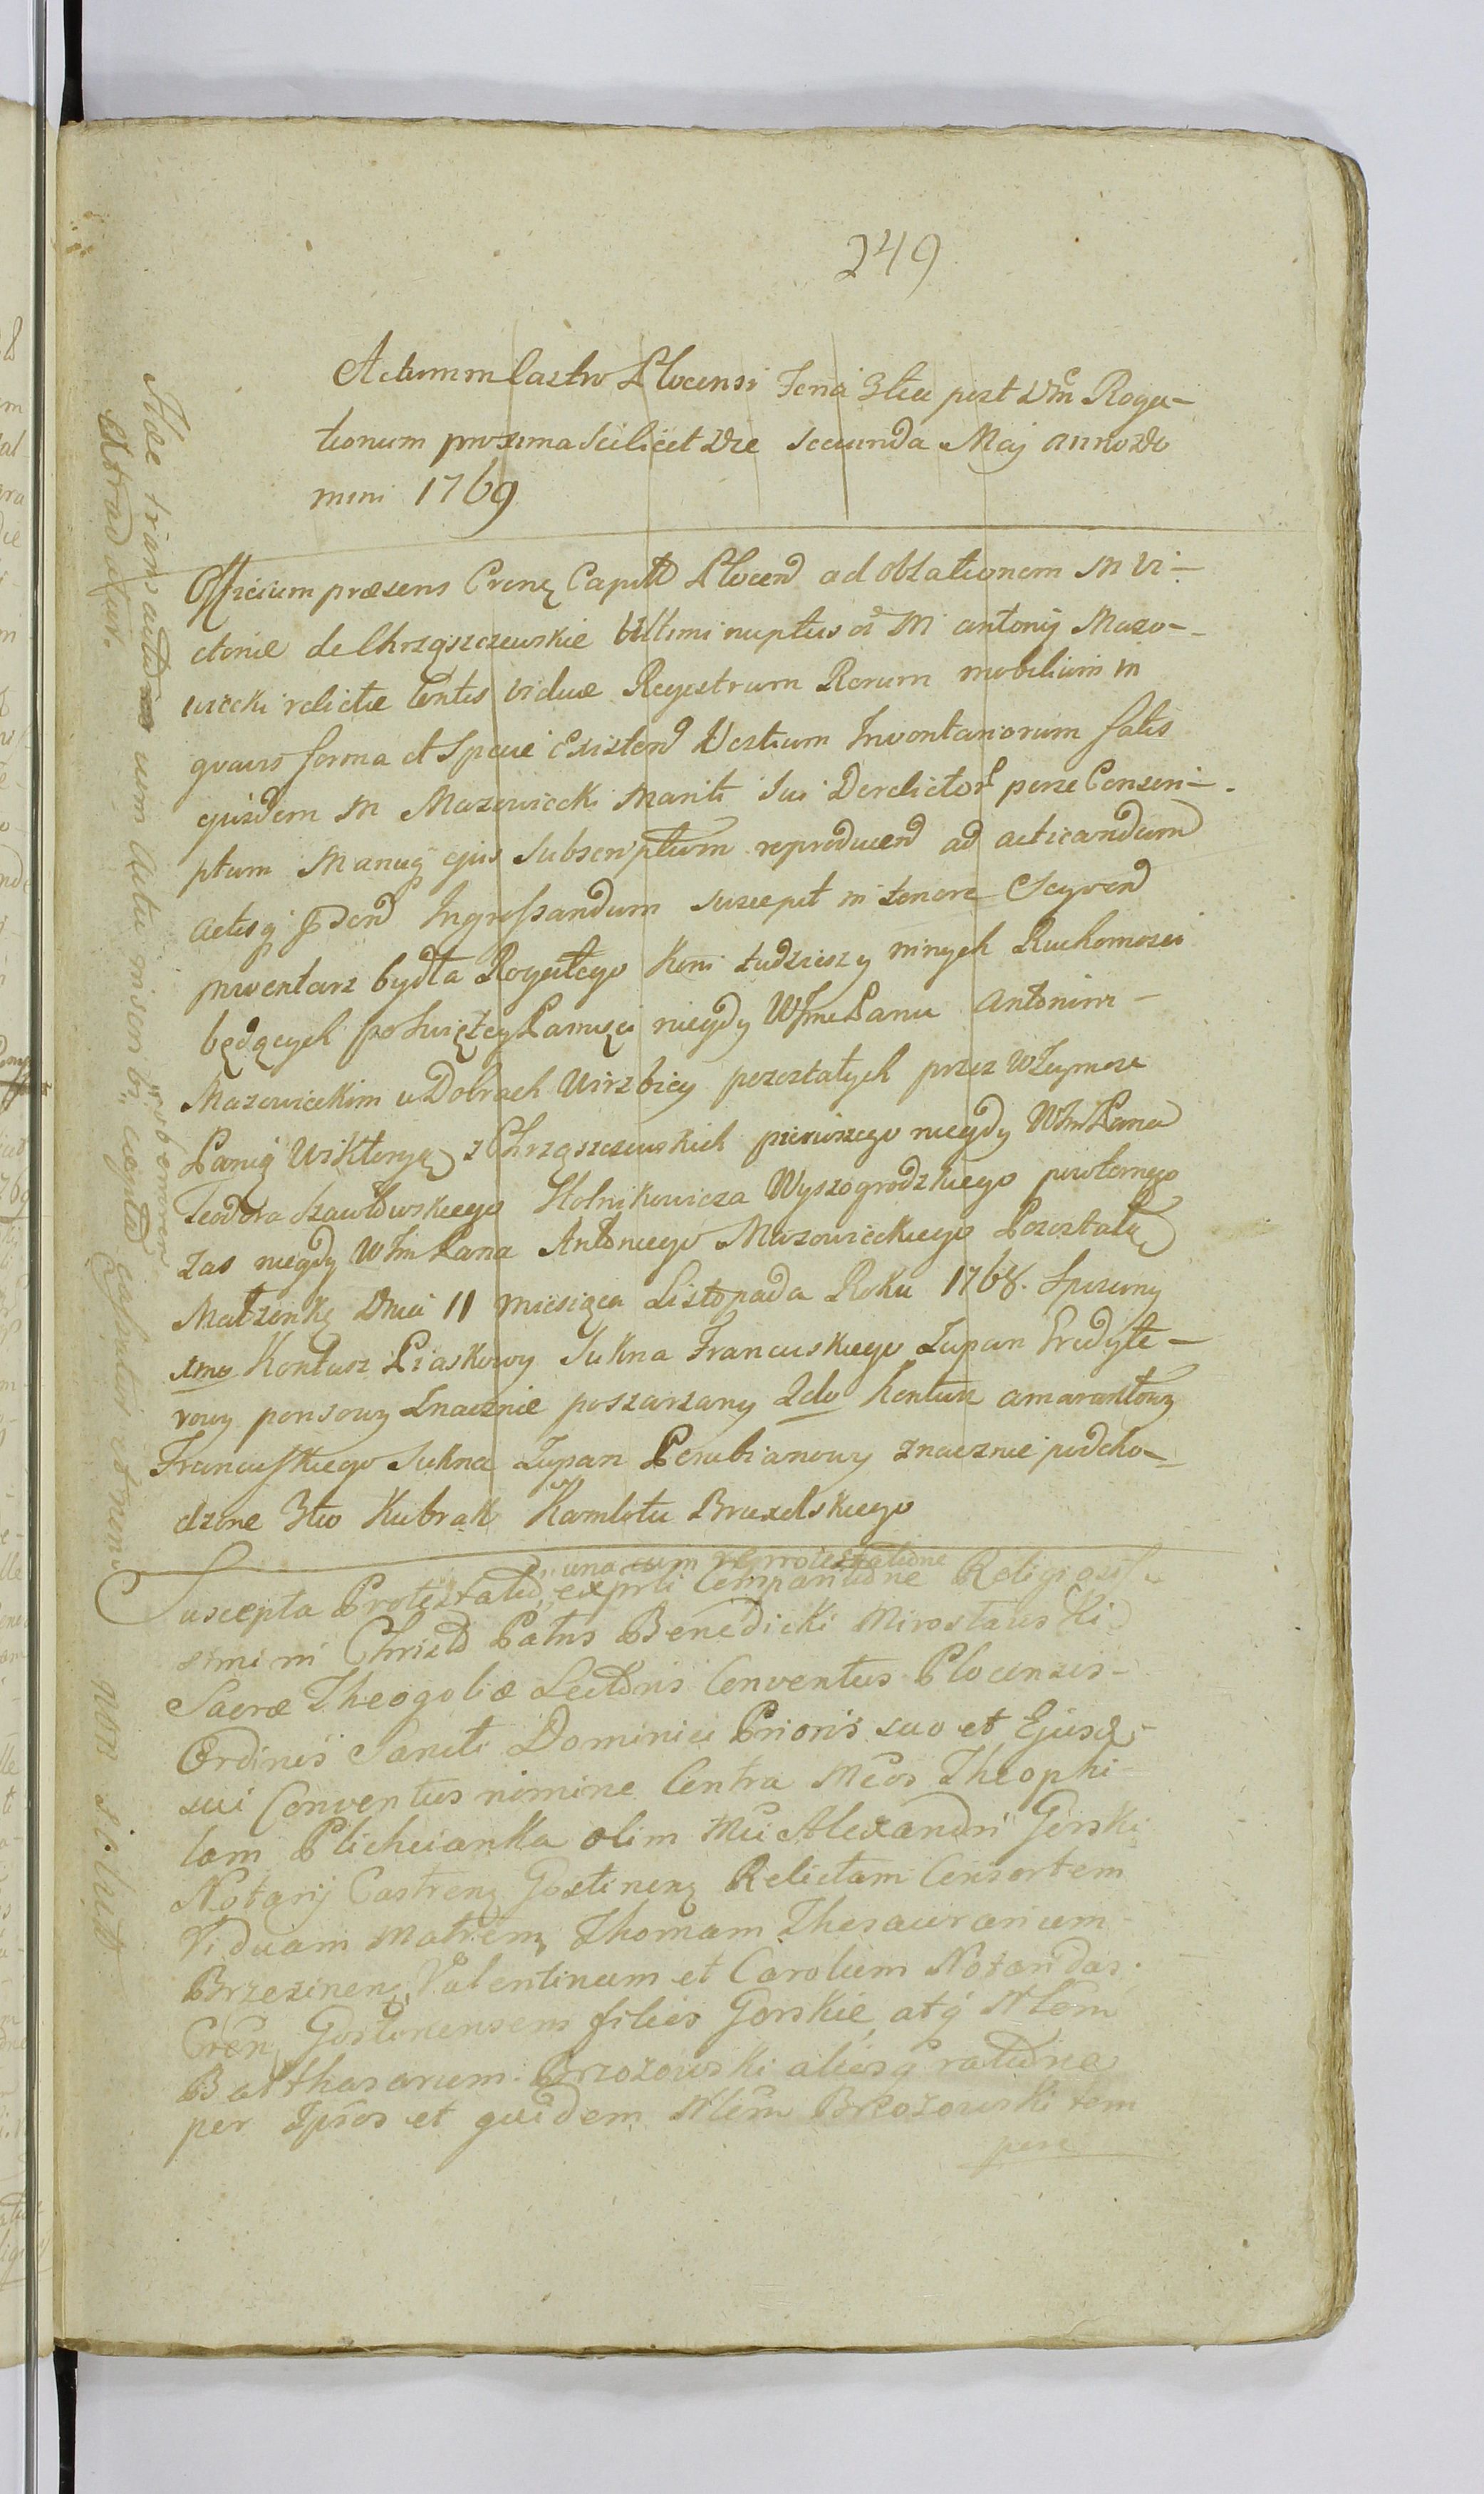 249
Actum in Castro Plocensi Feria 3tia post Dm̃ Roga-
tionum proxima Scilicet Die Secunda Maj anno Do
mini 1769
Officium præsens Crenẓ Capitl Plocen ad oblationem M Vi-
ctoriæ de Chrząszczewskie Ultimi nuptus M antonij Mazo-
wiecki relictæ Contis viduæ Regestrum Rerum mobilium in
quavis forma et Specie Existen Vestium Inventariorum fatis
ejusdem M Mazowiecki Mariti Sui Derelictor perse Conscri-
ptum Manuq ejus Subscriptum reproducen ad acticandum
actisq Ingrossandum Suscepit in tenore Seqven
inwentarz bydła Rogatego Koni tudziesz y innych Ruchomosci
będących po Swiętey Pamięci niegdy WJm Panu Antonim-
Mazowieckim w Dobrach Wirzbicy pozostałych przez WJeymosc
Panią Wiktoryą z Chrząszczewskich pierwszego niegdy WJm Pana
Teodora Szawłowskiego Stolnikowicza Wyszogrodzkiego powtornego
Zas niegdy WJm Pana Antoniego Mazowieckiego Pozostałą
Małzonkę Dnia 11 Miesiąca Listopada Roku 1768. Spisany
1mo Kontusz Piaskowy Sukna Francuskiego Zupan Gredyte-
rowy ponsowy Znacznie poszarzany 2do Kontusz amarantowy
Francuskiego Sukna Zupan Perubianowy znacznie podcho-
dzone 3tio Kubrak Kamlotu Bruxelskiego
una cum reprotestatione
Suscepta Protestatio ex parti Comparitione Religiosis
simi in Christo Patris Benedicki Mirosławski
Sacræ Theogoliæ Lectoris Conventus Plocensis-
Ordinis Sancti Dominici Prioris suo et Ejusq-
sui Conventus nomine Contra Mcos Theophi-
lam Plichcianka olim Mci Alexandri Gorski
Notarij Castrenẓ Gostinenẓ Relictam Consortem
Viduam Matrem, Thomam Thesaurarium-
Brzezinenẓ, Valentinum et Carolum Notaridas.
Cren Gostinensem filios Gorskie, atq Nlem
Balthasarum. Brzozowski aliosq ratione
per Ipsos et quidem Nlem Brzozowski tem
pore
Ide transactio cum Actu inscrib. capta cassatur et non sicut
Extradatur.